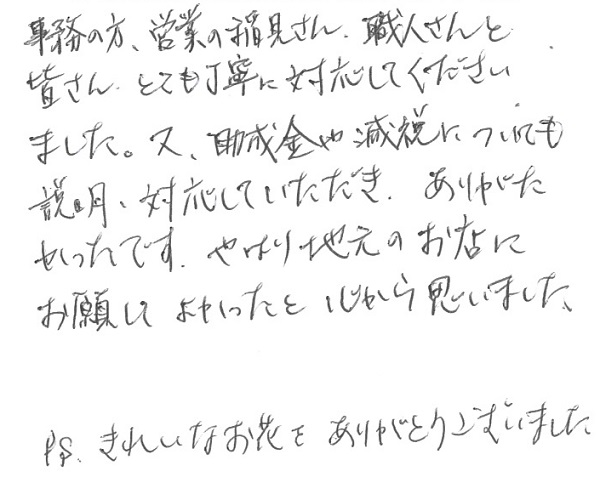 事務の方、営業の稲見さん、職人さんと
皆さん とても丁寧に対応してください
ました。又、助成金や減税についても
説明、対応していただき、ありがた
かったです。やはり地元のお店に
お願いして よかったと 心から思いました。
PS. きれいなお花を ありがとうございました